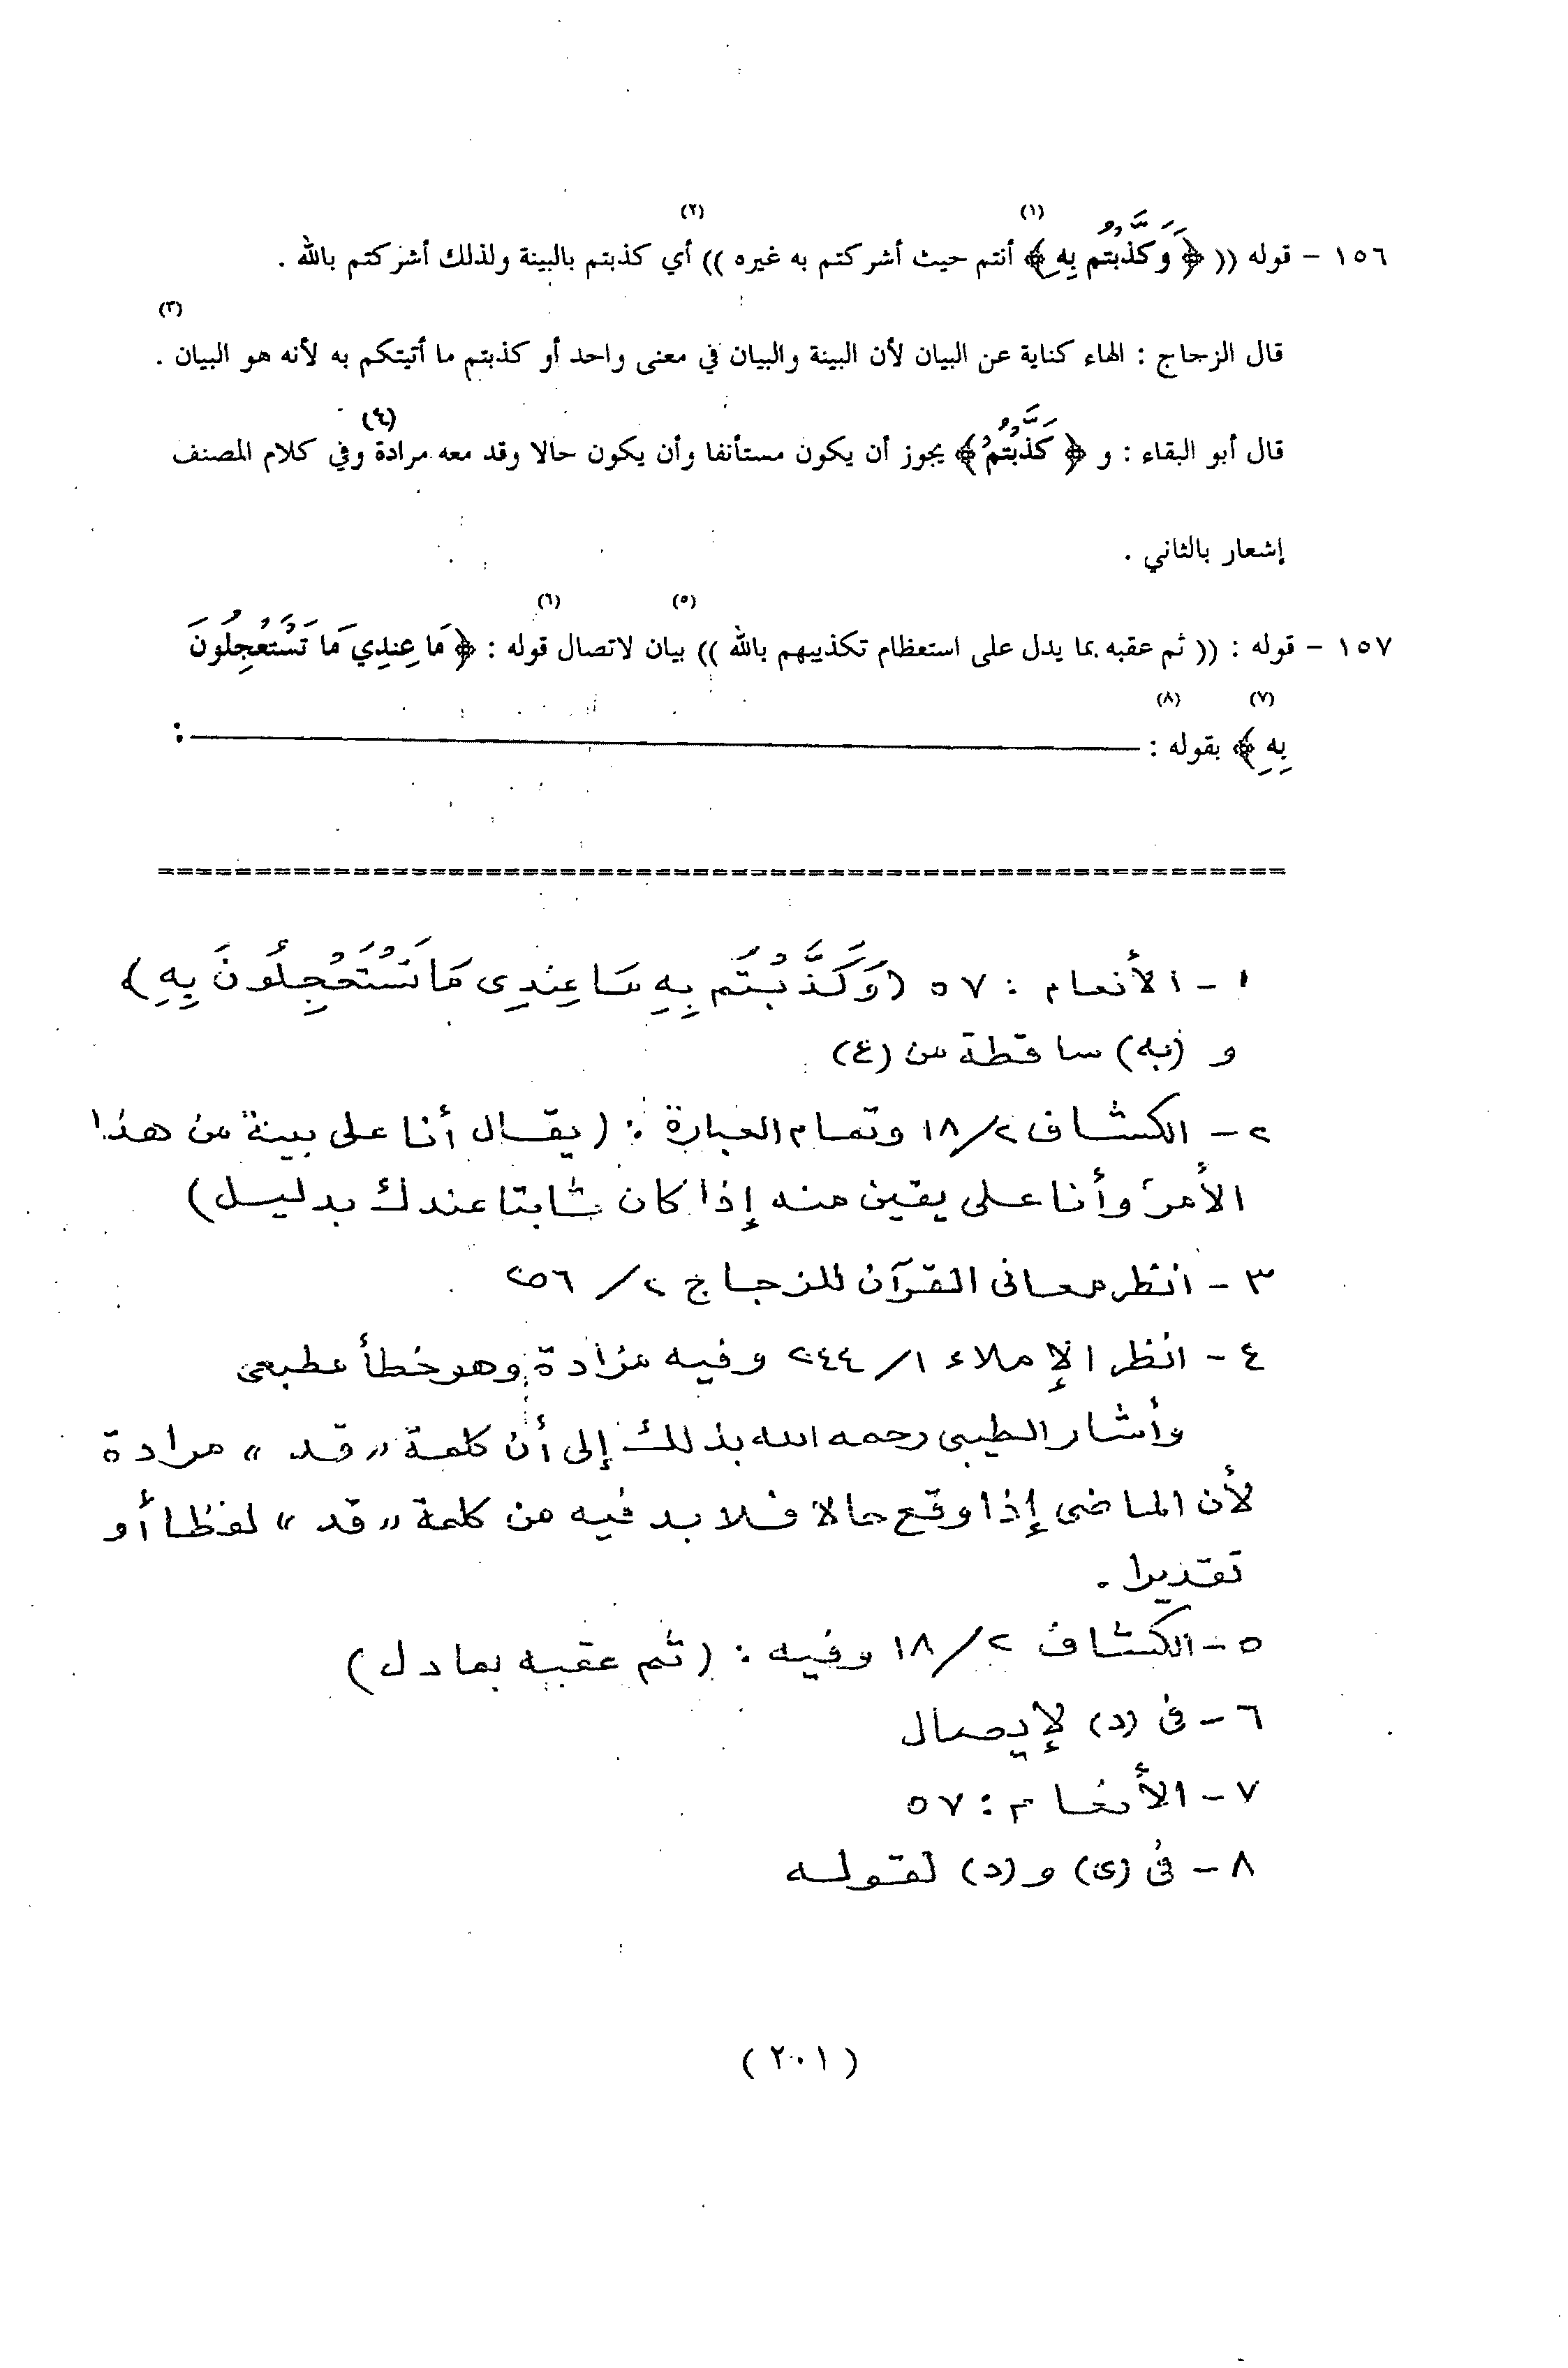 ١٥٦ - قوله (( ﴿ وَكَذَّبْتُم بِهِ ﴾ (١) أنتم حيث أشركتم به غيره )) (٢) أي كذبتم بالبينة ولذلك أشركتم بالله .
قال الزجاج : الهاء كناية عن البيان لأن البينة والبيان في معنى واحد أو كذبتم ما أتيتكم به لأنه هو البيان . (٣)
قال أبو البقاء : و ﴿ كَذَّبْتُمْ ﴾ يجوز أن يكون مستأنفا وأن يكون حالا وقد معه مرادة (٤) وفي كلام المصنف
إشعار بالثاني .
١٥٧ - قوله : (( ثم عقبه بما يدل على استعظام تكذيبهم بالله )) (٥) بيان لاتصال (٦) قوله : ﴿ مَا عِندِي مَا تَسْتَعْجِلُونَ
بِهِ ﴾ (٧) بقوله (٨) : ـــــــــــــــــ :
==========================================
١ - الأنعام : ٥٧ (وَكَذَّبْتُم بِهِ مَا عِندِى مَا تَسْتَعْجِلُونَ بِهِ)
و (به) ساقطة من (ع)
٢ - الكشاف ١٨/٢ وتمام العبارة : (يقال أنا على بينة من هذا
الأمر وأنا على يقين منه إذا كان ثابتا عندك بدليل)
٣ - انظر معانى القرآن للزجاج ٢ / ٢٥٦
٤ - انظر الإملاء ١ / ٢٤٤ وفيه مزادة وهو خطأ مطبعى
وأشار الطيبى رحمه الله بذلك إلى أن كلمة « قد » مرادة
لأن الماضى إذا وقع حالا فلا بد فيه من كلمة « قد » لفظا أو
تقديرا .
٥ - الكشاف ١٨/٢ وفيه : (ثم عقبه بما دل)
٦ - فى (د) لإيصال
٧ - الأنعام : ٥٧
٨ - فى (ى) و (د) لقوله
( ٢٠١ )